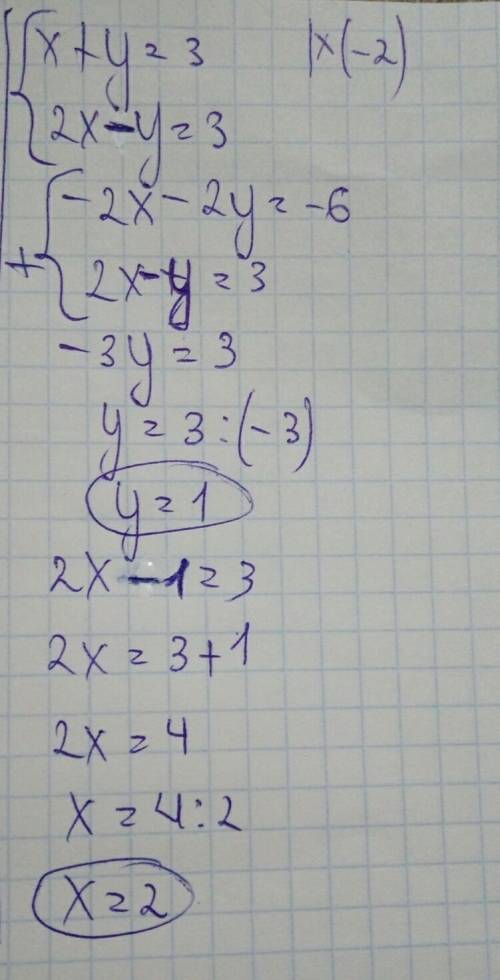 x+y=3 |x(-2)
2x-y=3
-2x-2y=-6
+
2x-y=3
-3y=3
y=3:(-3)
y=1
2x-1=3
2x=3+1
2x=4
x=4:2
x=2